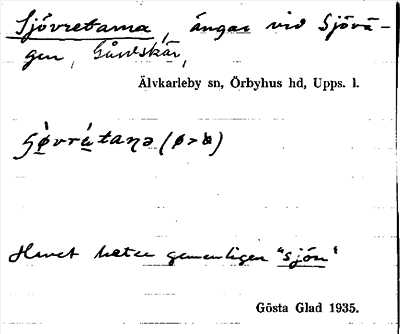 Sjövretarna, ängar vid Sjövä-
gen, Gårdskär,
Älvkarleby sn, Örbyhus hd, Upps. l.
Havet heter gemenligen "sjön"
Gösta Glad 1935.